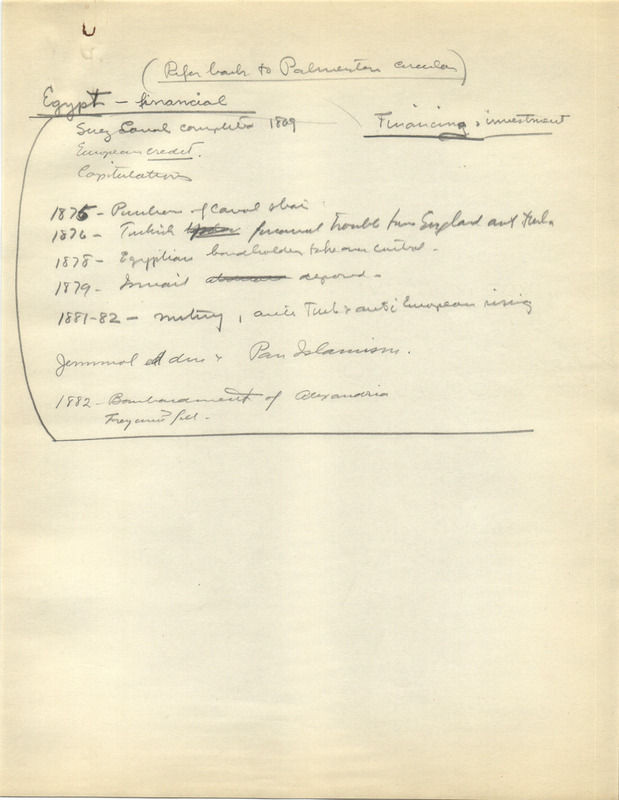 (Refer back to Palmerston circular)
Egypt - financial
Financing & investment
Suez Canal completed 1869
European credit.
Capitulations
1875 - Purchase of canal shares
1876 - Turkish financial trouble turns England and
1878 - Egyptian bondholders take over control -
1879 - Ismail deposed -
1881-82 - mutiny, anti Turk & anti European rising
Jemmal ed din & Pan Islamism.
1882 - Bombardment of Alexandria
Freycinet fell -